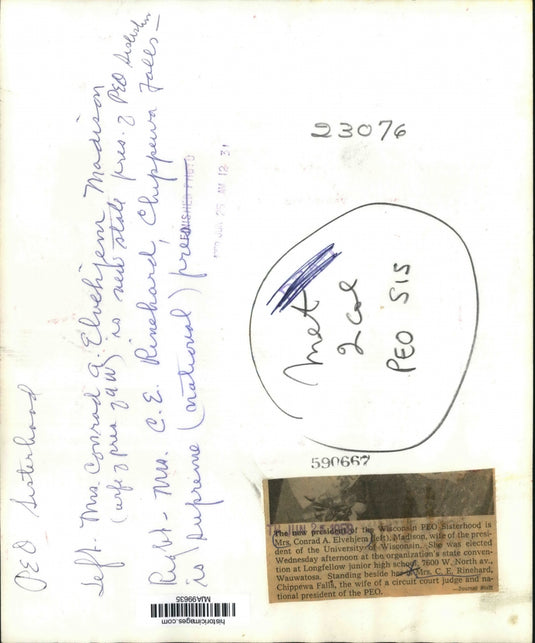 PEO Sisterhood
Left - Mrs. Conrad A. Elvehjem Madison
(wife of pres of UW) is new state pres. of PEO Sisterhood
Right - Mrs. C. E. Rinehard, Chippewa Falls -
is supreme (national) pres
PUBLISHED PHOTO
25 AM 12 31
23076
Met
2 col
PEO SIS
590667
The new president of the Wisconsin PEO Sisterhood is
Mrs. Conrad A. Elvehjem (left), Madison, wife of the presi-
dent of the University of Wisconsin. She was elected
Wednesday afternoon at the organization's state conven-
tion at Longfellow junior high school, 7600 W. North av.,
Wauwatosa. Standing beside her is Mrs. C. E. Rinehard,
Chippewa Falls, the wife of a circuit court judge and na-
tional president of the PEO.
—Journal Staff
historicimages.com
MJA99635